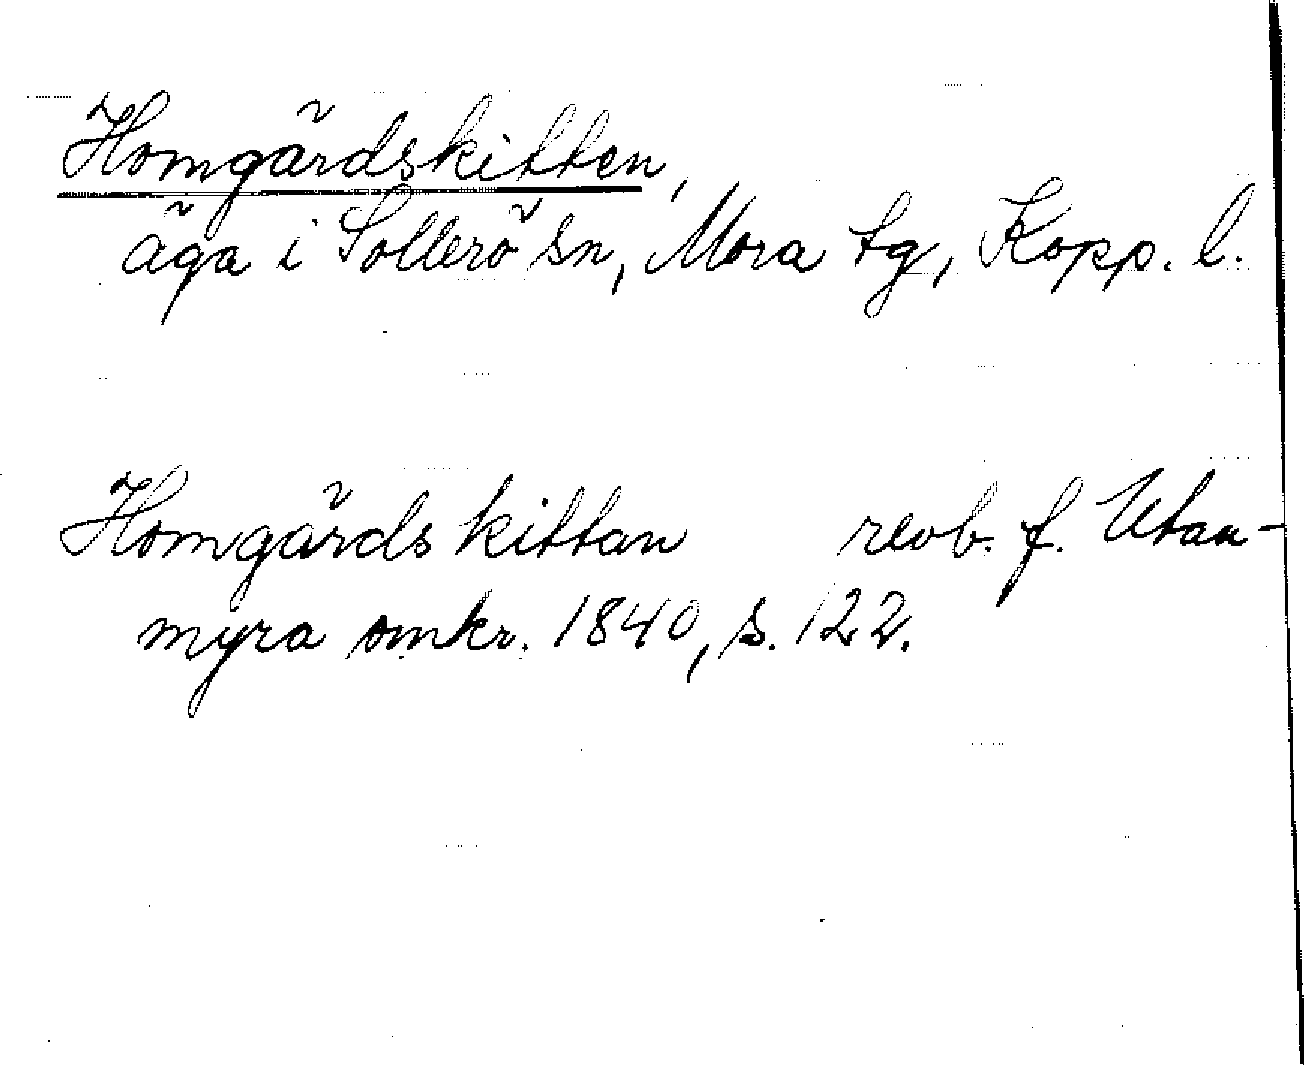 Homgärdskitten,
äga i Sollerö sn, Mora tg, Kopp. l.
Homgärds kittan revb. f. Utan-
myra omkr. 1840, s. 122.